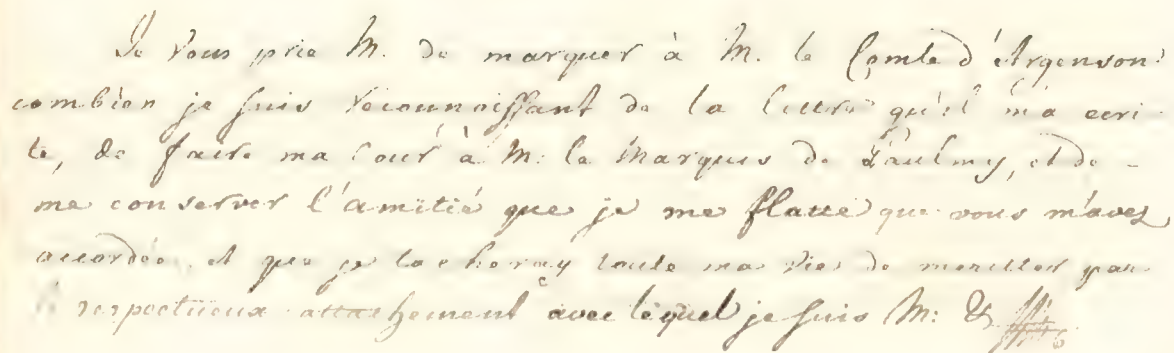 Je vous prie M. de marquer à M. le Comte d'Argenson
combien je suis reconnoissant de la lettre qu'il m'a ecri-
te, de faire ma cour à M. le Marquis de Paulmy, et de -
me conserver l'amitié que je me flatte que vous m'avez
accordée, et que je tacheray toute ma vie de meriter par
respectueux attachement avec lequel je suis M. &